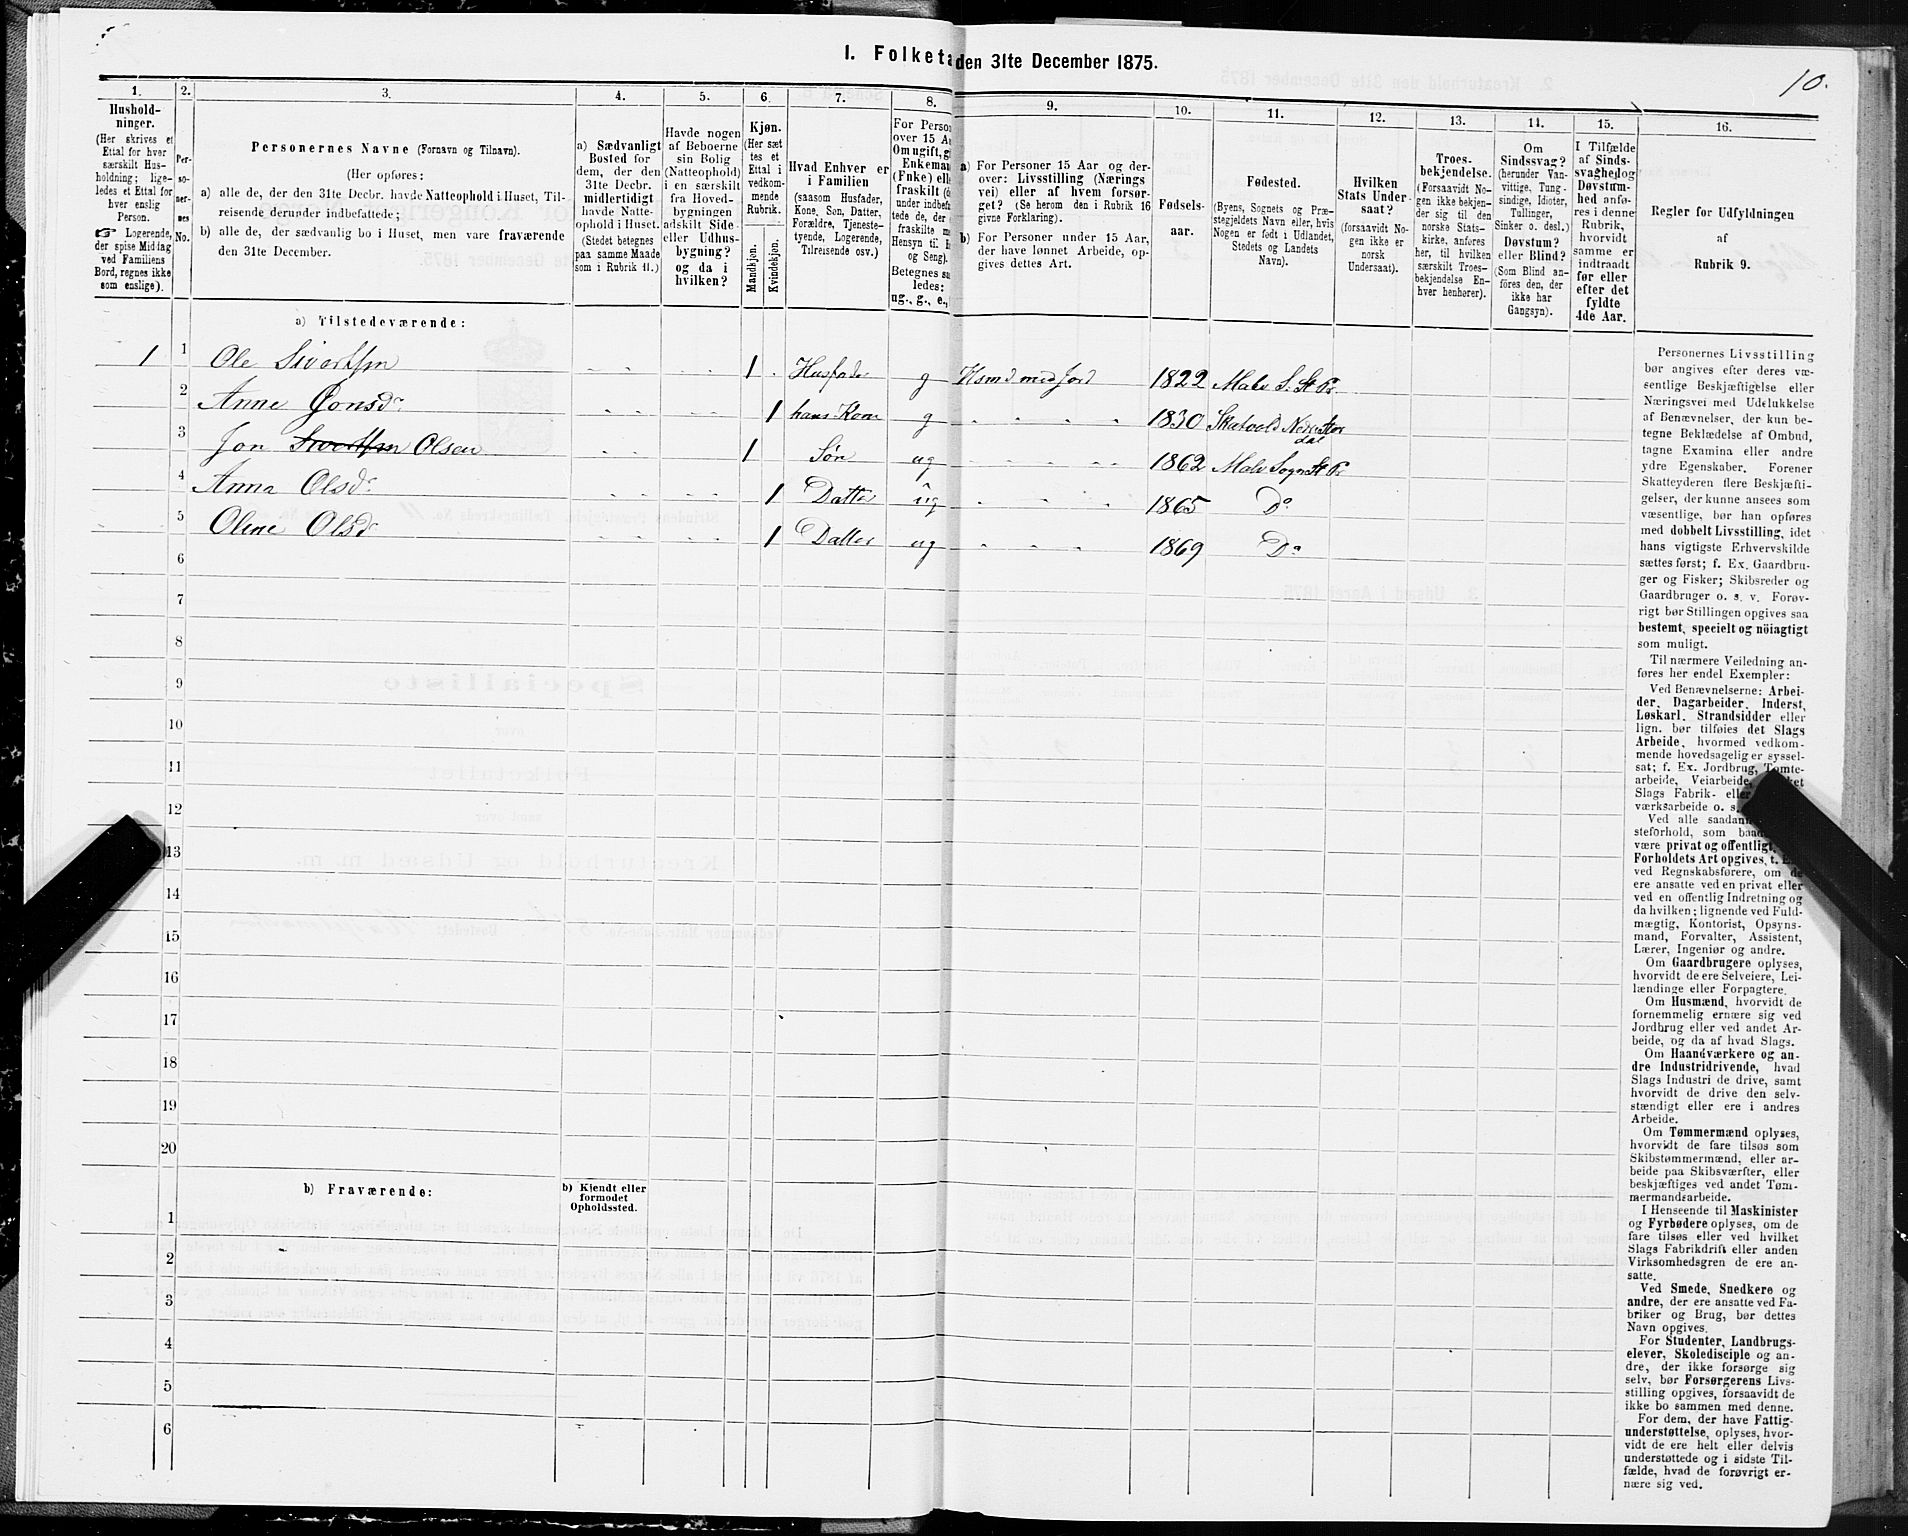 I. Folketa den 31te December 1875.
10.
1.
2.
3.
4.
5.
6.
7.
8.
9.
10.
11.
12.
13.
14.
15.
16.
Hushold-
ninger.
(Her skrives et
Ettal for hver
særskilt Hus-
holdning; lige-
ledes et Ettal for
hver enslig
Person.
☞ Logerende,
der spise Middag
ved Familiens
Bord, regnes ikke
som enslige).
Per-
so-
ner-
nes
No.
Personernes Navne (Fornavn og Tilnavn).
(Her opføres:
a) alle de, der den 31te Decbr. havde Natteophold i Huset, Til-
reisende derunder indbefattede;
b) alle de, der sædvanlig bo i Huset, men vare fraværende
den 31te December.
a) Sædvanligt
Bosted for
dem, der den
31te Decbr.
midlertidigt
havde Natte-
ophold i Huset.
(Stedet betegnes
paa samme Maade
som i Rubrik 11.)
Havde nogen
af Beboerne
sin Bolig
(Natteophold)
i en særskilt
fra Hoved-
bygningen
adskilt Side-
eller Udhus-
bygning?
og da i
hvilken?
Kjøn.
(Her sæt-
tes et
Ettal i
vedkom-
mende
Rubrik.
Mandkjøn.
Kvindekjøn.
Hvad Enhver er
i Familien
(saasom Husfader,
Kone, Søn, Datter,
Forældre, Tjeneste-
tyende, Logerende,
Tilreisende osv.)
For Person
over 15 Aa
Om ugift, g
Enkeman
(Fnke) elle
fraskilt (
under indbef
tede de, der
fraskilte m
Hensyn til
og Seng).
Betegnes sa
ledes:
ug., g., e.,
a) For Personer 15 Aar og der-
over: Livsstilling (Nærings-
vei) eller af hvem forsør-
get? (Se herom den i Rubrik 16
givne Forklaring).
b) For Personer under 15 Aar,
der have lønnet Arbeide, op-
gives dettes Art.
Fødsels-
aar.
Fødested.
(Byens, Sognets og Præ-
stegjeldets Navn eller, hvis
Nogen er født i Udlandet,
Stedets og Landets
Navn).
Hvilken
Stats Under-
saat?
(forsaavidt No-
gen ikke er
norsk
Undersaat).
Troes-
bekjendelse.
(Forsaavidt No-
gen ikke bekjen-
der sig til den
norske Stats-
kirke, anføres
her, til hvilken
særskilt Troes-
bekjendelse En-
hver henhører).
Om
Sindssvag?
(herunder Van-
vittige, Tung-
sindige, Idioter,
Tullinger,
Sinker o. desl.)
Døvstum?
eller Blind?
(Som Blind an-
føres den, der
ikke har
Gangsyn).
I Tilfælde
af Sinds-
svaghed og
Døvstum-
hed anfø-
res i denne
Rubrik,
hvorvidt
samme er
indtraadt
før eller
efter det
fyldte
4de Aar.
Regler for Udfyldningen
af
Rubrik 9.
a) Tilstedeværende:
1 1 Ole Sivertsen 1 Husfader g Husmd med Jord 1822 Malv S. St Pr.
2 Anne Jonsdr 1 hans Kone g 1830 Skatvold Nedre Stor
dal
3 Jon Sivertsen Olsen 1 Søn ug 1862 Malv Sogn St Pr
4 Anna Olsdr 1 Datter ug 1865 Do
5 Oline Olsdr 1 Datter ug 1869 Do
6
7
8
9
10
11
12
13
14
15
16
17
18
19
20
b) Fraværende:
b) Kjendt eller
formodet
Opholdssted.
1
2
3
4
5
6
Personernes Livsstilling
bør angives efter deres væ-
sentlige Beskjæftigelse eller
Næringsvei med Udelukkelse
af Benævnelser, der kun be-
tegne Beklædelse af Ombud,
tagne Examina eller andre
ydre Egenskaber. Forener
Skatteyderen flere Beskjæfti-
gelser, der kunne ansees som
væsentlige, bør han opføres
med dobbelt Livsstilling, idet
hans vigtigste Erhvervskilde
sættes først; f. Ex. Gaardbru-
ger og Fisker; Skibsreder og
Gaardbruger o. s. v. Forøv-
rigt bør Stillingen opgives saa
bestemt, specielt og nøiagtigt
som muligt.
Til nærmere Veiledning an-
føres her endel Exempler:
Ved Benævnelserne: Arbei-
der, Dagarbeider, Inderst,
Løskarl, Strandsidder eller
lign. bør tilføies det Slags
Arbeide, hvormed vedkom-
mende hovedsagelig er syssel-
sat; f. Ex. Jordbrug, Tomte-
arbeide, Veiarbeide,
Slags Fabrik- eller
værksarbeide o. s.
Ved alle saadan
steforhold, som baa
være privat og offentligt,
Forholdets Art opgives, t. E
ved Regnskabsførere, om de
ere ansatte ved en privat eller
ved en offentlig Indretning og
da hvilken; lignende ved Fuld-
mægtig, Kontorist, Opsyns-
mand, Forvalter, Assistent,
Lærer, Ingeniør og andre.
Om Gaardbrugere oplyses,
hvorvidt de ere Selveiere, Lei-
lændinge eller Forpagtere.
Om Husmænd, hvorvidt de
fornemmelig ernære sig ved
Jordbrug eller ved andet Ar-
beide, og da af hvad Slags.
Om Haandværkere og an-
dre Industridrivende, hvad
Slags Industri de drive, samt
hvorvidt de drive den selv-
stændigt eller ere i andres
Arbeide.
Om Tømmermænd oplyses,
hvorvidt de fare tilsøs som
Skibstømmermænd, eller ar-
beide paa Skibsværfter, eller
beskjæftiges ved andet Tøm-
mermandsarbeide.
I Henseende til Maskinister
og Fyrbødere oplyses, om de
fare tilsøs eller ved hvilket
Slags Fabrikdrift eller anden
Virksomhedsgren de ere an-
satte.
Ved Smede, Snedkere og
andre, der ere ansatte ved Fa-
briker og Brug, bør dettes
Navn opgives.
For Studenter, Landbrugs-
elever, Skoledisciple og an-
dre, der ikke forsørge sig
selv, bør Forsørgerens Livs-
stilling opgives, forsaavidt de
ikke bo sammen med denne.
For dem, der have Fattig-
understøttelse, oplyses, hvor-
vidt de ere helt eller delvis
understøttede og i sidste Til-
fælde, hvad de forøvrigt er-
nære sig ved.